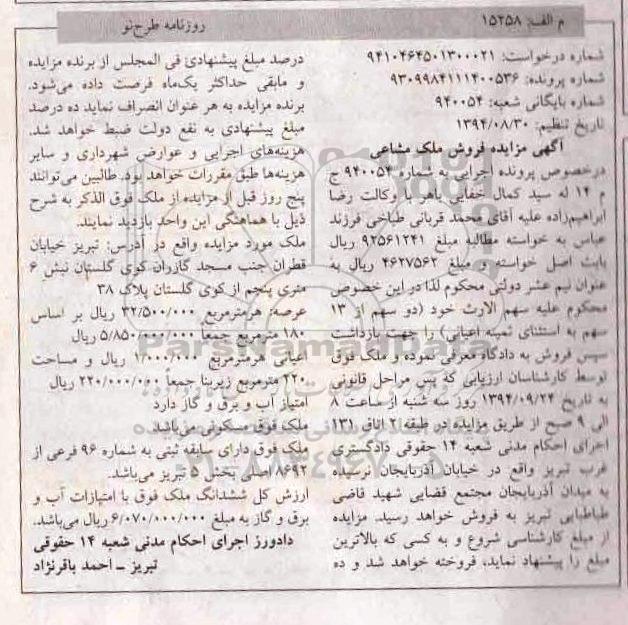 م الف: ۱۵۲۵۸
روزنامه طرح نو
شماره درخواست: ۹۴۱۰۴۶۴۵۰۱۳۰۰۰۲۱
شماره پرونده: ۹۳۰۹۹۸۴۱۱۱۴۰۰۵۳۶
شماره بایگانی شعبه: ۹۴۰۰۵۴
تاریخ تنظیم: ۱۳۹۴/۰۸/۳۰
آگهی مزایده فروش ملک مشاعی
درخصوص پرونده اجرایی به شماره ۹۴۰۰۵۴ ج
م ۱۴ له سید کمال خفایی باهر با وکالت رضا
ابراهیم‌زاده علیه آقای محمد قربانی طباخی فرزند
عباس به خواسته مطالبه مبلغ ۹۲۵۶۱۲۴۱ ریال
بابت اصل خواسته و مبلغ ۴۶۲۷۵۶۲ ریال به
عنوان نیم عشر دولتی محکوم لذا در این خصوص
محکوم علیه سهم الارث خود (دو سهم از ۱۳
سهم به استثنای ثمنیه اعیانی) را جهت بازداشت
سپس فروش به دادگاه معرفی نموده و ملک فوق
توسط کارشناسان ارزیابی که پس مراحل قانونی
به تاریخ ۱۳۹۴/۰۹/۲۴ روز سه شنبه از ساعت ۸
الی ۹ صبح از طریق مزایده در طبقه ۲ اتاق ۱۳۱
اجرای احکام مدنی شعبه ۱۴ حقوقی دادگستری
غرب تبریز واقع در خیابان آذربایجان نرسیده
به میدان آذربایجان مجتمع قضایی شهید قاضی
طباطبایی تبریز به فروش خواهد رسید. مزایده
از مبلغ کارشناسی شروع و به کسی که بالاترین
مبلغ را پیشنهاد نماید، فروخته خواهد شد و ده
درصد مبلغ پیشنهادی فی المجلس از برنده مزایده
و مابقی حداکثر یک‌ماه فرصت داده می‌شود.
برنده مزایده به هر عنوان انصراف نماید ده درصد
مبلغ پیشنهادی به نفع دولت ضبط خواهد شد.
هزینه‌های اجرایی و عوارض شهرداری و سایر
هزینه‌ها طبق مقررات خواهد بود. طالبین می‌توانند
پنج روز قبل از مزایده از ملک فوق الذکر به شرح
ذیل با هماهنگی این واحد بازدید نمایند.
ملک مورد مزایده واقع در آدرس: تبریز خیابان
قطران جنب مسجد گازران کوی گلستان نبش ۶
متری پنجم از کوی گلستان پلاک ۳۸
عرصه: هرمترمربع ۳۲/۵۰۰/۰۰۰ ریال بر اساس
۱۸۰ مترمربع جمعاً ۵/۸۵۰/۰۰۰/۰۰۰ ریال
اعیانی هرمترمربع ۱/۰۰۰/۰۰۰ ریال و مساحت
۲۲۰ مترمربع زیربنا جمعاً ۲۲۰/۰۰۰/۰۰۰ ریال
امتیاز آب و برق و گاز دارد
ملک فوق مسکونی می‌باشد.
ملک فوق دارای سابقه ثبتی به شماره ۹۶ فرعی از
۸۶۹۲ اصلی بخش ۵ تبریز می‌باشد.
ارزش کل ششدانگ ملک فوق با امتیازات آب و
برق و گاز به مبلغ ۶/۰۷۰/۰۰۰/۰۰۰ ریال می‌باشد.
دادورز اجرای احکام مدنی شعبه ۱۴ حقوقی
تبریز ــ احمد باقرنژاد
ParsNamadData